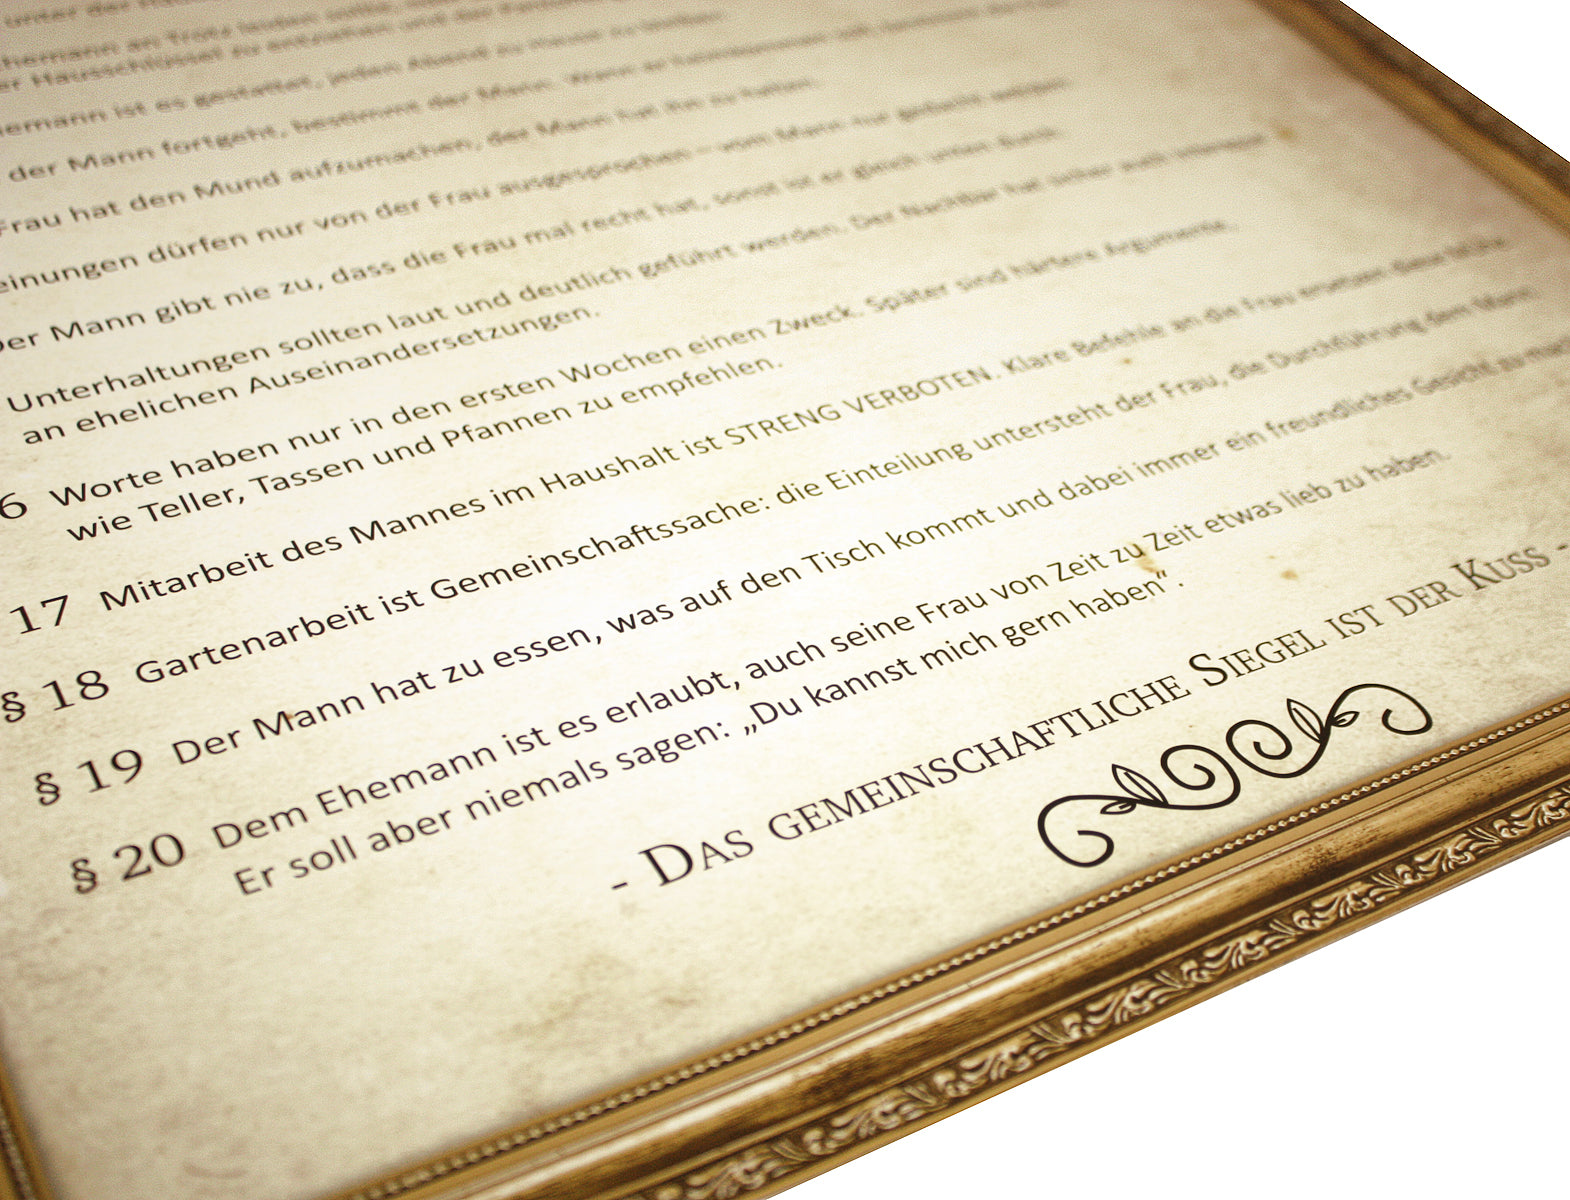 unter der
hemann an Trotz leiden sollte,
er Hausschlüssel zu entziehen und der
emann ist es gestattet, jeden Abend zu Hause zu bleiben.
der Mann fortgeht, bestimmt der Mann. Wann er
Frau hat den Mund aufzumachen, der Mann hat ihn zu halten.
einungen dürfen nur von der Frau ausgesprochen – vom Mann nur gedacht werden.
Der Mann gibt nie zu, dass die Frau mal recht hat, sonst ist er gleich unten durch.
Unterhaltungen sollten laut und deutlich geführt werden. Der Nachbar hat sicher auch Interesse
an ehelichen Auseinandersetzungen.
6 Worte haben nur in den ersten Wochen einen Zweck. Später sind härtere Argumente,
wie Teller, Tassen und Pfannen zu empfehlen.
17 Mitarbeit des Mannes im Haushalt ist STRENG VERBOTEN. Klare Befehle an die Frau ersetzen diese Mühe.
§ 18 Gartenarbeit ist Gemeinschaftssache: die Einteilung untersteht der Frau, die Durchführung dem Mann.
§ 19 Der Mann hat zu essen, was auf den Tisch kommt und dabei immer ein freundliches Gesicht zu mac
§ 20 Dem Ehemann ist es erlaubt, auch seine Frau von Zeit zu Zeit etwas lieb zu haben.
Er soll aber niemals sagen: „Du kannst mich gern haben“ .
- Das gemeinschaftliche Siegel ist der Kuss -